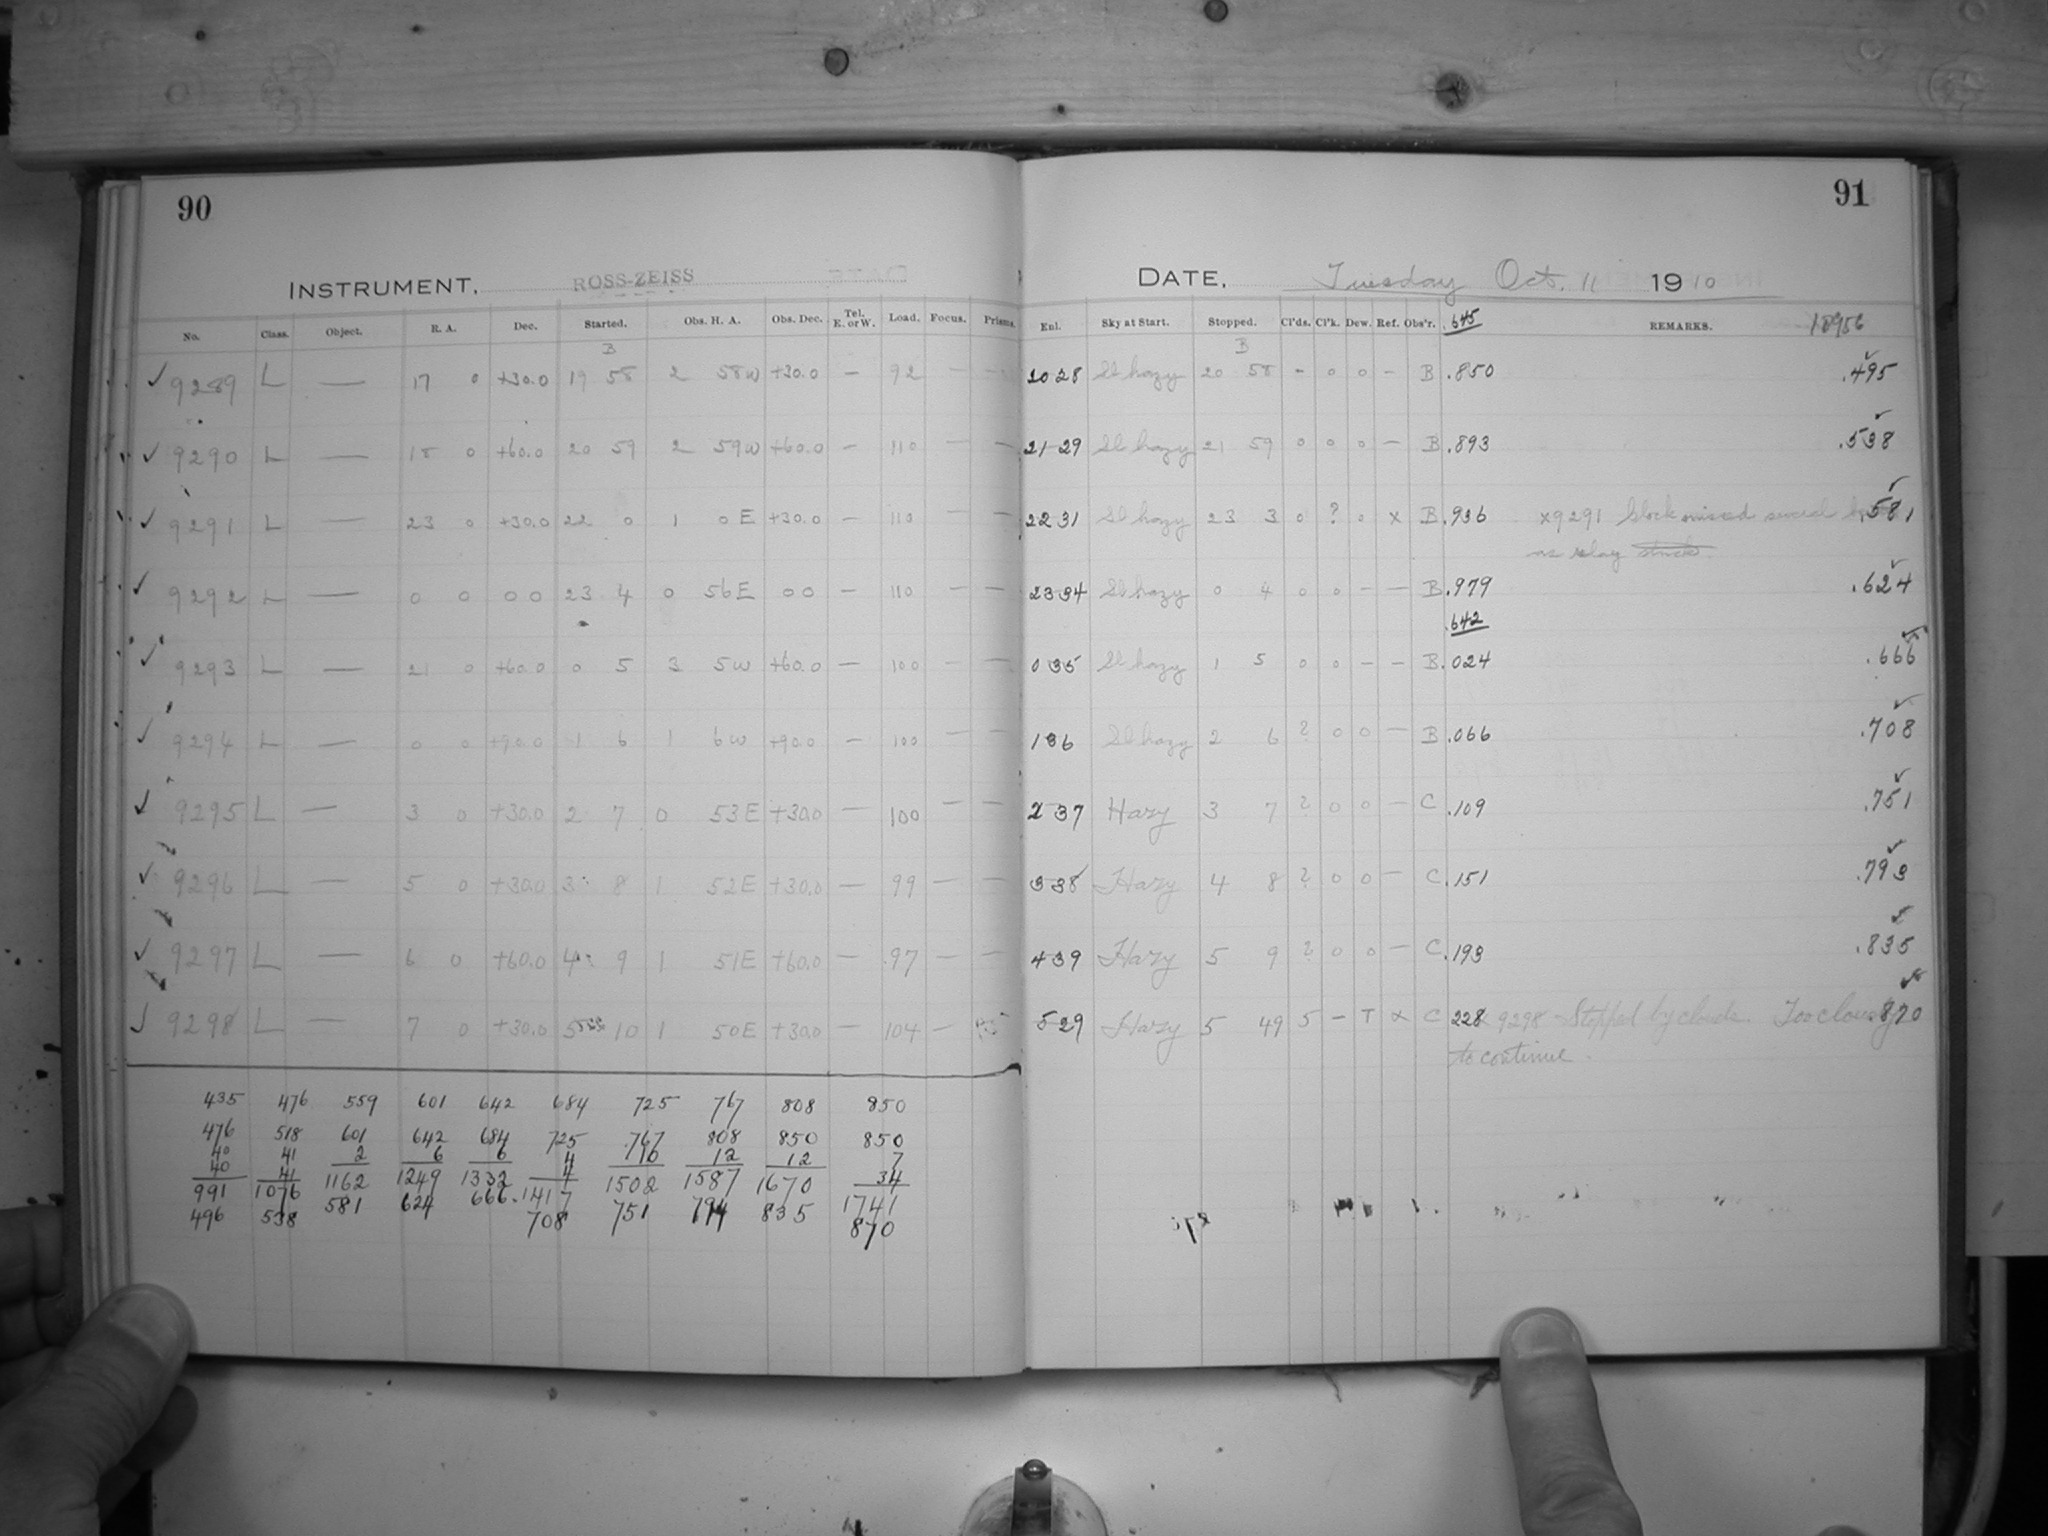 90
INSTRUMENT, ROSS-ZEISS
No. Class. Object. R. A. Dec. Started. Obs. H. A. Obs. Dec. Tel. E. or W. Load. Focus. Prisms.
B
✓ 9289 L — 17 0 +30.0 19 58 2 58W +30.0 — 92 — —
✓ 9290 L — 18 0 +60.0 20 59 2 59W +60.0 — 110 — —
✓ 9291 L — 23 0 +30.0 22 0 1 0E +30.0 — 110 — —
✓ 9292 L — 0 0 00 23 4 0 56E 00 — 110 — —
✓ 9293 L — 21 0 +60.0 0 5 3 5W +60.0 — 100 — —
✓ 9294 L — 0 0 +90.0 1 6 1 6W +90.0 — 100 — —
✓ 9295 L — 3 0 +30.0 2 7 0 53E +30.0 — 100 — —
✓ 9296 L — 5 0 +30.0 3 8 1 52E +30.0 — 99 — —
✓ 9297 L — 6 0 +60.0 4 9 1 51E +60.0 — 97 — —
✓ 9298 L — 7 0 +30.0 5 10 1 50E +30.0 — 104 —
435 476 559 601 642 684 725 767 808 850
476 518 601 642 684 725 767 808 850 850
40 41 2 6 6 4 12 12 7
40 41 4 34
991 1076 1162 1249 1332 1417 1502 1587 1670 1741
496 538 581 624 666 708 751 794 835 870
91
DATE, Tuesday Oct. 11 1910
Enl. Sky at Start. Stopped. Cl'ds. Cl'k. Dew. Ref. Obs'r. .645 REMARKS. 18956
B
20 28 Sl hazy 20 58 - 0 0 - B .850 .495
21 29 Sl hazy 21 59 0 0 0 — B .893 .538
22 31 Sl hazy 23 3 0 ? 0 x B .936 x9291 Clock missed several .581
as relay stuck.
23 34 Sl hazy 0 4 0 0 — — B .979 .624
.642
0 35 Sl hazy 1 5 0 0 — — B .024 .666
1 36 Sl hazy 2 6 ? 0 0 — B .066 .708
2 37 Hazy 3 7 ? 0 0 — C .109 .751
3 38 Hazy 4 8 ? 0 0 — C .151 .793
4 39 Hazy 5 9 ? 0 0 — C .193 .835
5 29 Hazy 5 49 5 — T x C 228 x 9298 Stopped by clouds. Too cloudy .870
to continue.